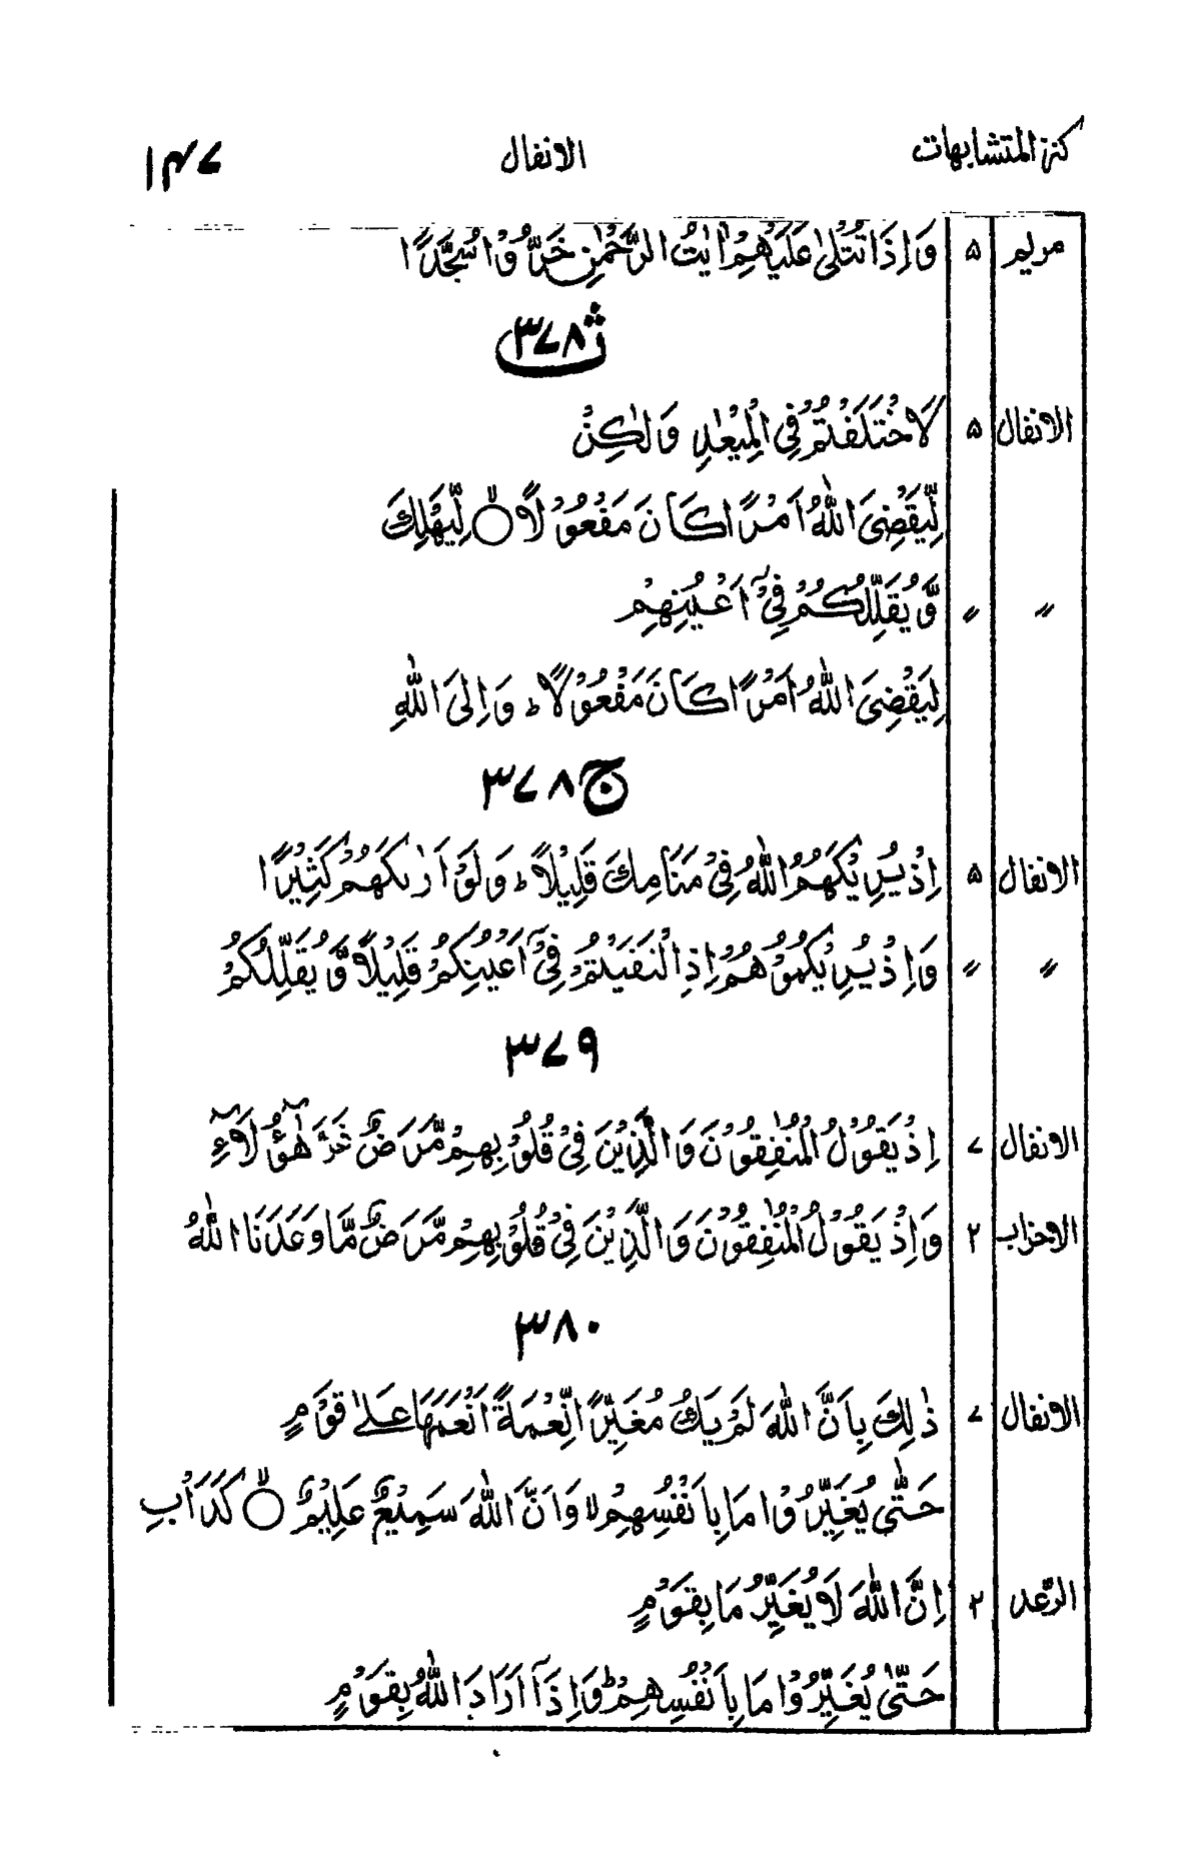 كنز المتشابهات الانفال ۱۴۷
مريم ۵ وَاِذَا تُتْلٰى عَلَيْهِمْ اٰيٰتُ الرَّحْمٰنِ خَرُّوْا سُجَّدًا
ث ۳۷۸
الانفال ۵ لَاخْتَلَفْتُمْ فِى الْمِيْعٰدِ وَلٰكِنْ
لِّيَقْضِىَ اللّٰهُ اَمْرًا كَانَ مَفْعُوْلًا ۝ لِّيَهْلِكَ
〃 〃 وَّيُقَلِّلُكُمْ فِىْٓ اَعْيُنِهِمْ
لِيَقْضِىَ اللّٰهُ اَمْرًا كَانَ مَفْعُوْلًا ؕ وَاِلَى اللّٰهِ
ج ۳۷۸
الانفال ۵ اِذْ يُرِيْكَهُمُ اللّٰهُ فِىْ مَنَامِكَ قَلِيْلًا ؕ وَلَوْ اَرٰىكَهُمْ كَثِيْرًا
〃 〃 وَاِذْ يُرِيْكُمُوْهُمْ اِذِ الْتَقَيْتُمْ فِىْٓ اَعْيُنِكُمْ قَلِيْلًا وَّيُقَلِّلُكُمْ
۳۷۹
الانفال ۷ اِذْ يَقُوْلُ الْمُنٰفِقُوْنَ وَالَّذِيْنَ فِىْ قُلُوْبِهِمْ مَّرَضٌ غَرَّ هٰٓؤُلَآءِ
الاحزاب ۲ وَاِذْ يَقُوْلُ الْمُنٰفِقُوْنَ وَالَّذِيْنَ فِىْ قُلُوْبِهِمْ مَّرَضٌ مَّا وَعَدَنَا اللّٰهُ
۳۸۰
الانفال ۷ ذٰلِكَ بِاَنَّ اللّٰهَ لَمْ يَكُ مُغَيِّرًا نِّعْمَةً اَنْعَمَهَا عَلٰى قَوْمٍ
حَتّٰى يُغَيِّرُوْا مَا بِاَنْفُسِهِمْ ۙ وَاَنَّ اللّٰهَ سَمِيْعٌ عَلِيْمٌ ۝ كَدَاْبِ
الرّعد ۲ اِنَّ اللّٰهَ لَا يُغَيِّرُ مَا بِقَوْمٍ
حَتّٰى يُغَيِّرُوْا مَا بِاَنْفُسِهِمْ ؕ وَاِذَآ اَرَادَ اللّٰهُ بِقَوْمٍ